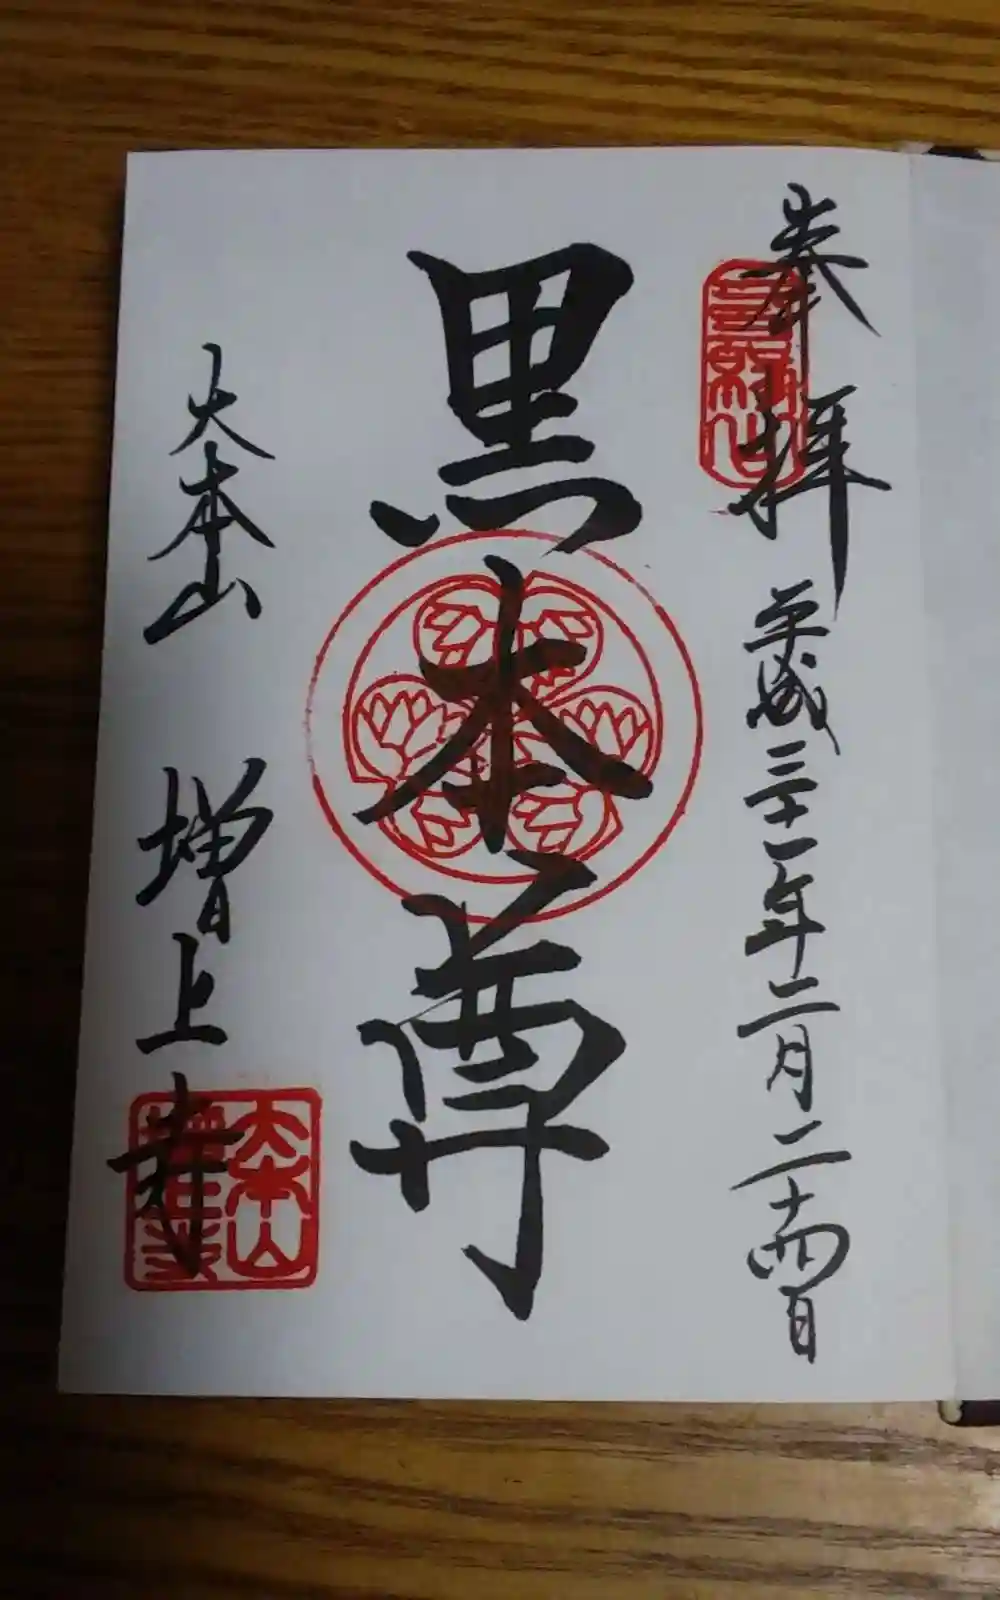 奉拝
平成三十一年二月二十四日
黒本尊
大本山 増上寺
大本山